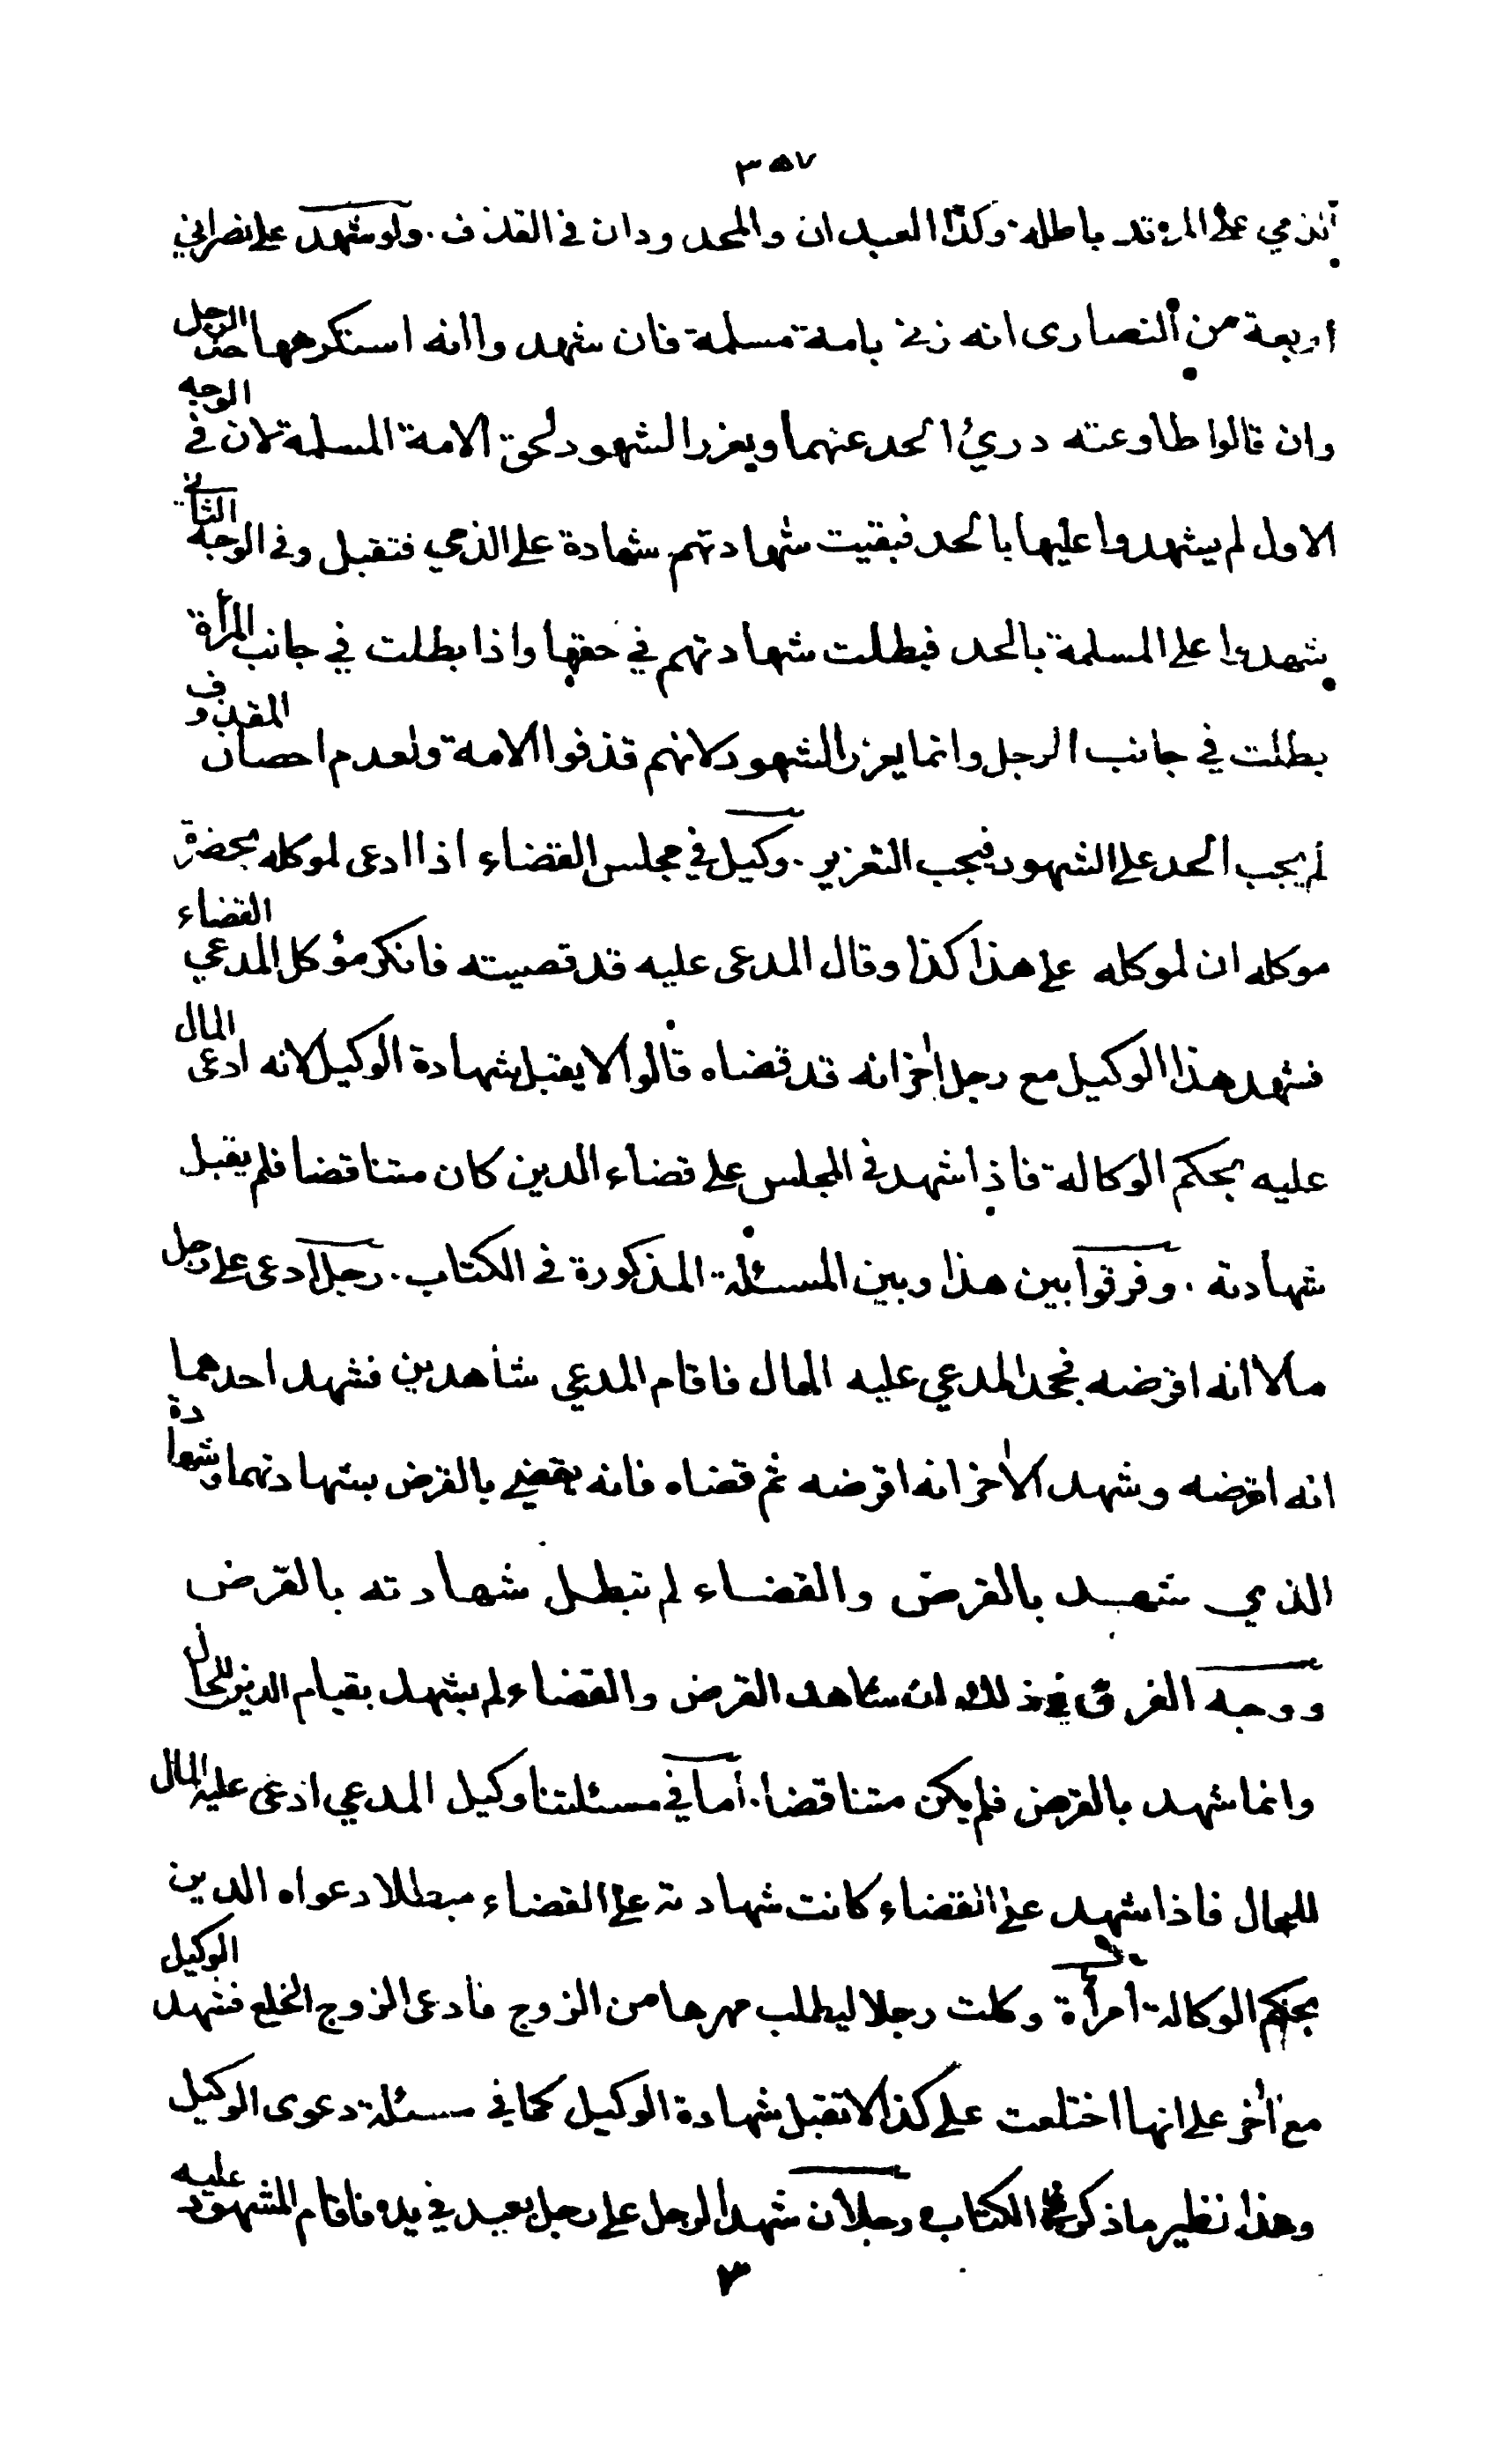 ٣٥٧
الذمي على المرتد باطلة. وكذا العبدان والمحدودان في القذف. ولو شهد على نصراني
اربعة من النصارى انه زنى بامة مسلمة فان شهدوا انه استكرهها حد الرجل
وان قالوا طاوعته درئ الحد عنهما ويعزر الشهود لحق الامة المسلمة لان في الوجه
الاول لم يشهدوا عليها بالحد فبقيت شهادتهم شهادة على الذمي فتقبل وفي الوجه الثاني
شهدوا على المسلمة بالحد فبطلت شهادتهم في حقها واذا بطلت في جانب المرأة
بطلت في جانب الرجل وانما يعزر الشهود لانهم قذفوا الامة ولعدم احصان المقذوف
لم يجب الحد على الشهود فيجب التعزير. وكيل في مجلس القضاء اذا ادعى لموكله بحضرة
موكله ان لموكله على هذا كذا وقال المدعى عليه قد قضيته فانكر مؤكل المدعي القضاء
فشهد هذا الوكيل مع رجل اٰخر انه قد قضاه قالوا لا يقبل شهادة الوكيل لانه ادعى المال
عليه بحكم الوكالة فاذا شهد في المجلس على قضاء الدين كان متناقضا فلم يقبل
شهادته. وفرقوا بين هذا وبين المسئلة المذكورة في الكتاب. رجل ادعى على رجل
مالا انه اقرضه فجحد المدعي عليه المال فاقام المدعي شاهدين فشهد احدهما
انه اقرضه وشهد الاٰخر انه اقرضه ثم قضاه فانه يقضي بالقرض بشهادتهما وشهادة
الذي شهد بالقرض والقضاء لم تبطل شهادته بالقرض
ووجه الفرق في ذلك ان شاهد القرض والقضاء لم يشهد بقيام الدين للحال
وانما شهد بالقرض فلم يكن متناقضا. أما في مسئلتنا وكيل المدعي ادعى عليه المال
للحال فاذا شهد على القضاء كانت شهادته على القضاء مبطلا دعواه الدين
بحكم الوكالة امرأة وكلت رجلا ليطلب مهرها من الزوج فادعى الزوج الخلع فشهد الوكيل
مع اٰخر على انها اختلعت على كذا لا تقبل شهادة الوكيل كما في مسئلة دعوى الوكيل
وهذا نظير ما ذكر في الكتاب رجلان شهدا لرجل على رجل بعبد في يده فاقام المشهود عليه
٣